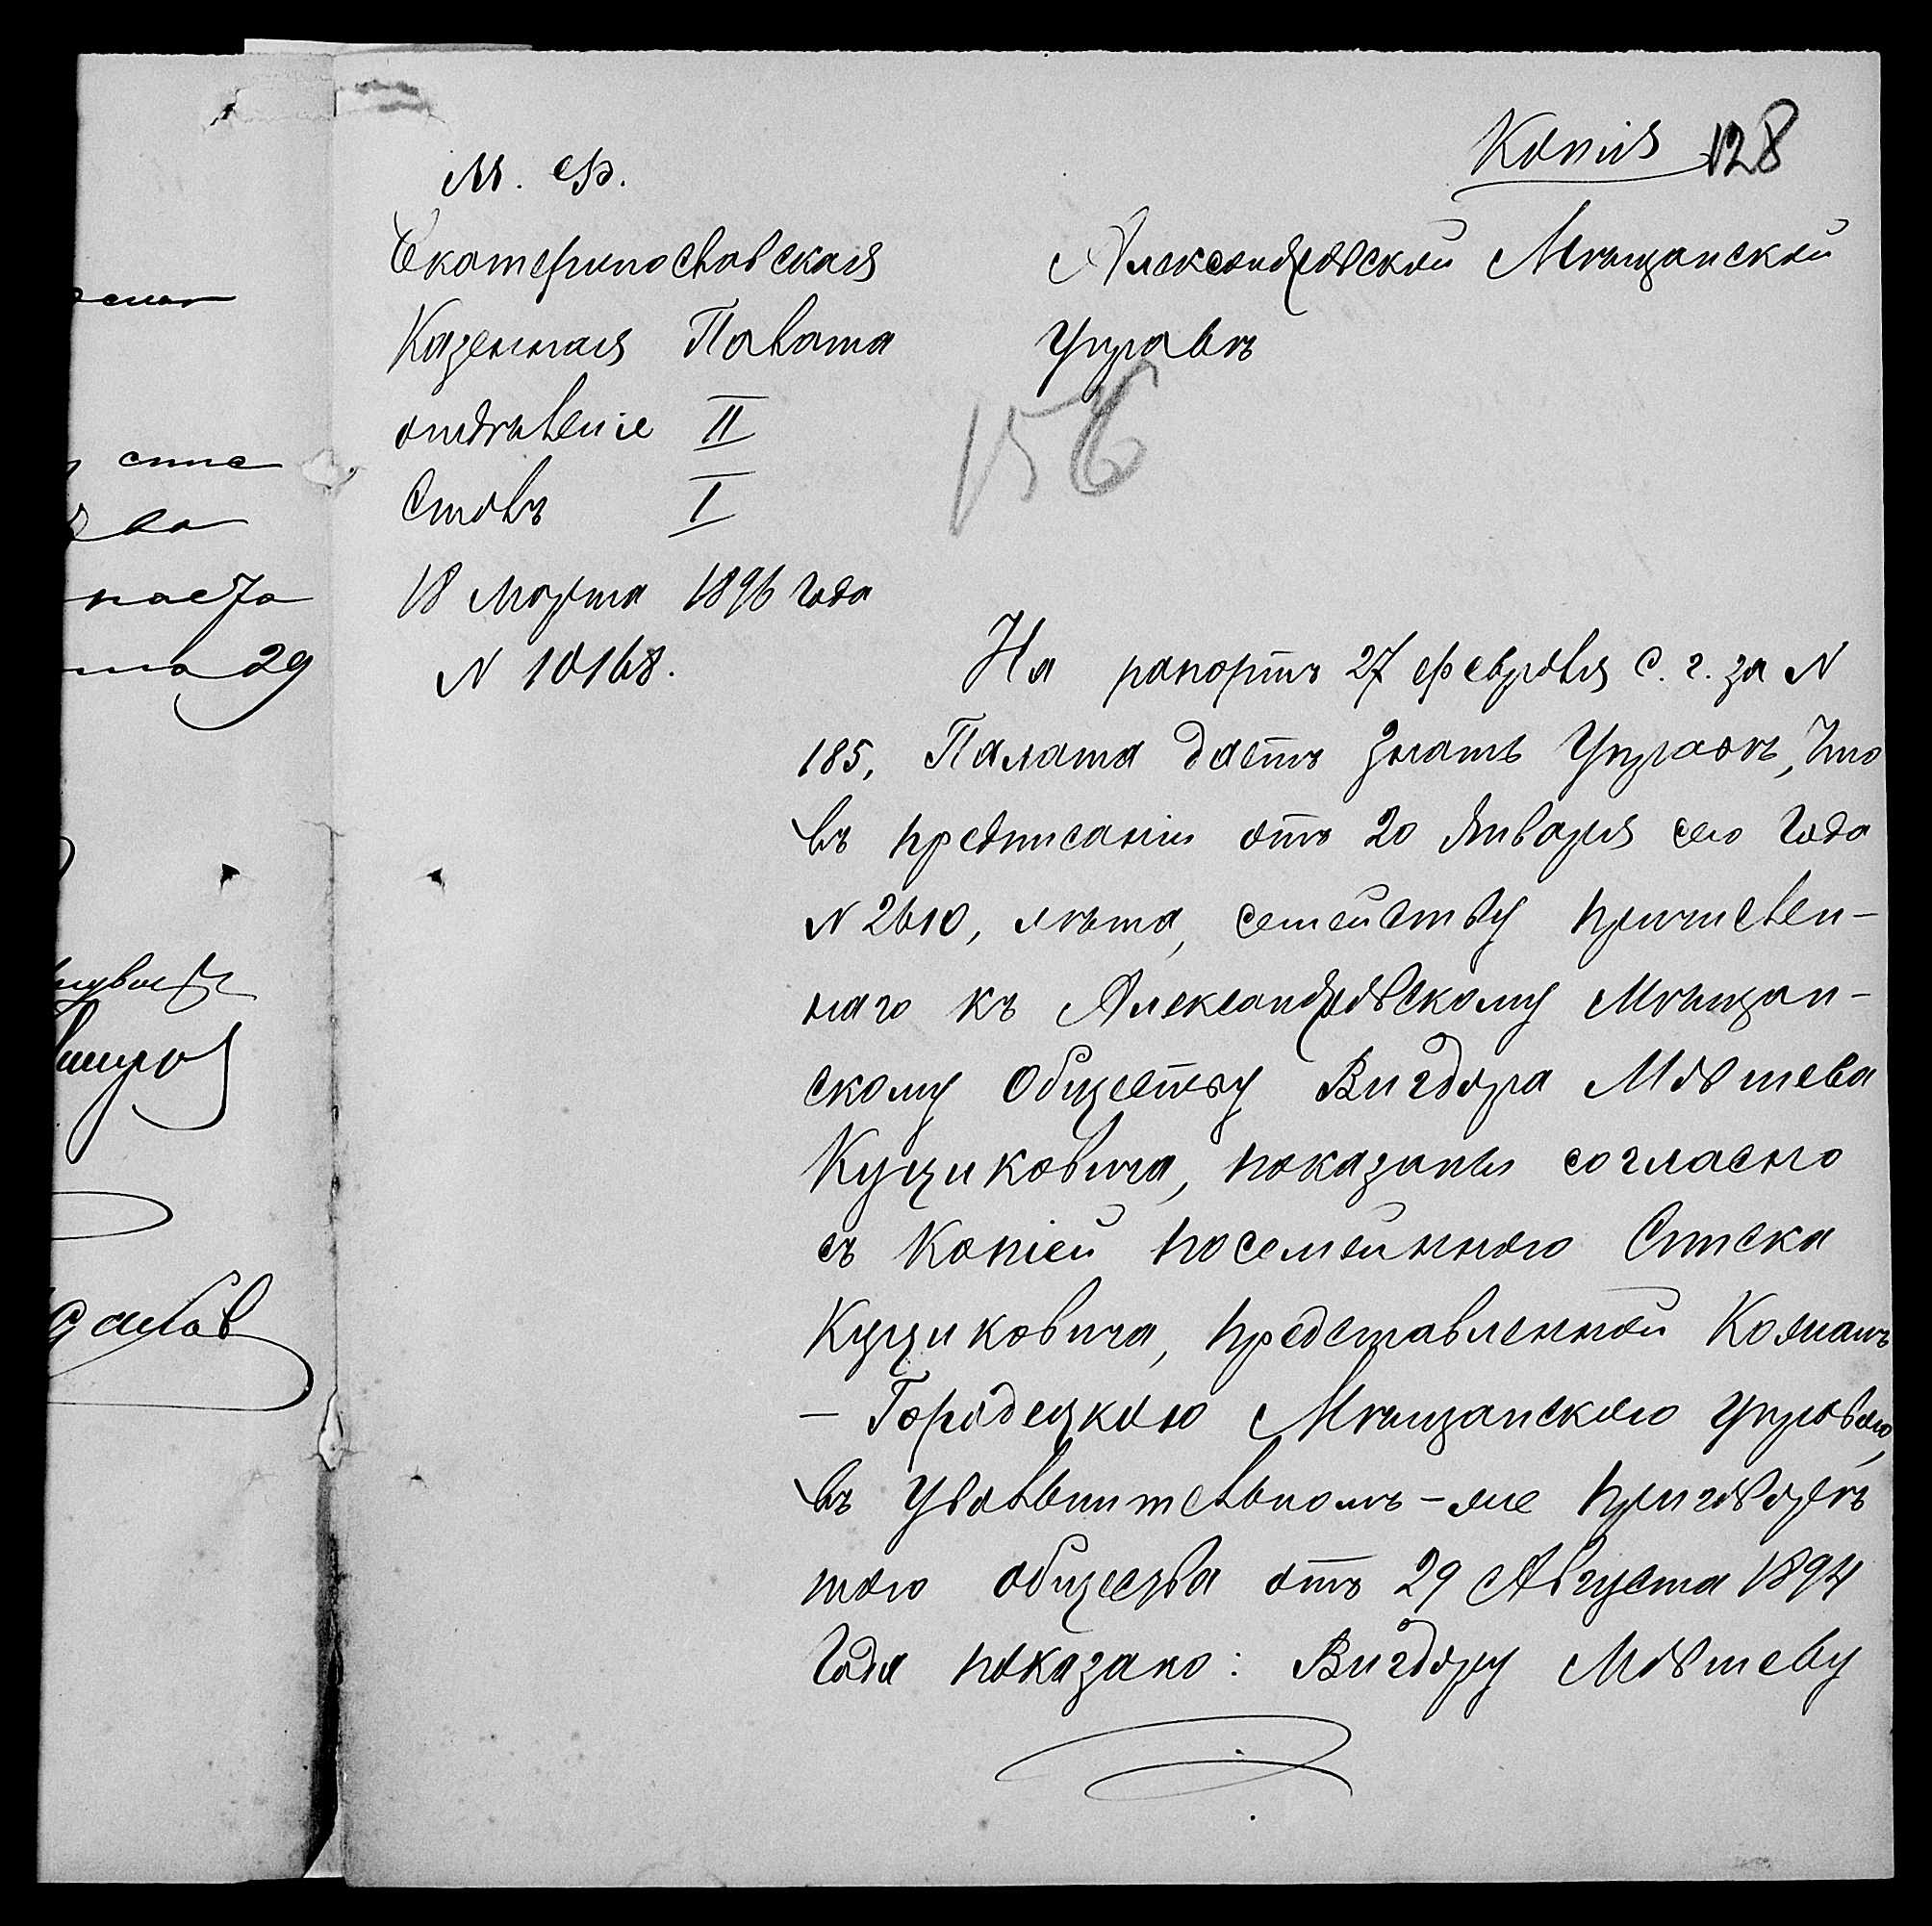 Копія 128
М. Ф.
Екатеринославская
Казенная Палата
отдѣленіе II
Столъ I
18 Марта 1896 года
N 10168.
Александровской Мѣщанской
Управѣ
156
На рапортъ 27 февраля с. г. за N
185, Палата даетъ знать Управѣ, что
въ предписаніи отъ 20 Января сего года
N 2610, лѣта, семейству причислен-
наго къ Александровскому Мѣщан-
скому Обществу Вигдора Мовшева
Куциковича, показаны согласно
съ копіей посемейнаго Списка
Куциковича, представленной Колтанъ
- Городецкою Мѣщанскою Управою,
въ увольнительномъ-же приговорѣ
того общества отъ 29 Августа 1894
года показано: Вигдору Мовшеву
спис
ва
29